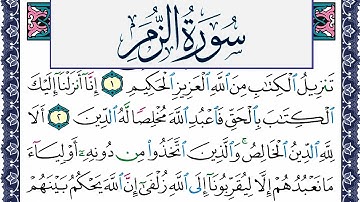 سُورَةُ الزُّمَرِ
تَنزِيلُ الْكِتَابِ مِنَ اللَّهِ الْعَزِيزِ الْحَكِيمِ ١ إِنَّا أَنزَلْنَا إِلَيْكَ
الْكِتَابَ بِالْحَقِّ فَاعْبُدِ اللَّهَ مُخْلِصًا لَّهُ الدِّينَ ٢ أَلَا
لِلَّهِ الدِّينُ الْخَالِصُ وَالَّذِينَ اتَّخَذُوا مِن دُونِهِ أَوْلِيَاءَ
مَا نَعْبُدُهُمْ إِلَّا لِيُقَرِّبُونَا إِلَى اللَّهِ زُلْفَى إِنَّ اللَّهَ يَحْكُمُ بَيْنَهُمْ